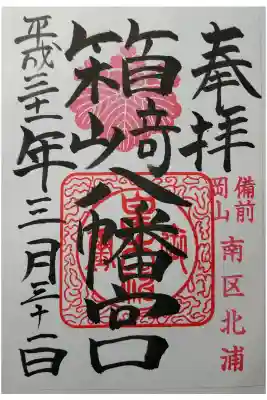 奉拝
備前
岡山
南区北浦
箱崎八幡宮
平成三十一年三月三十一日